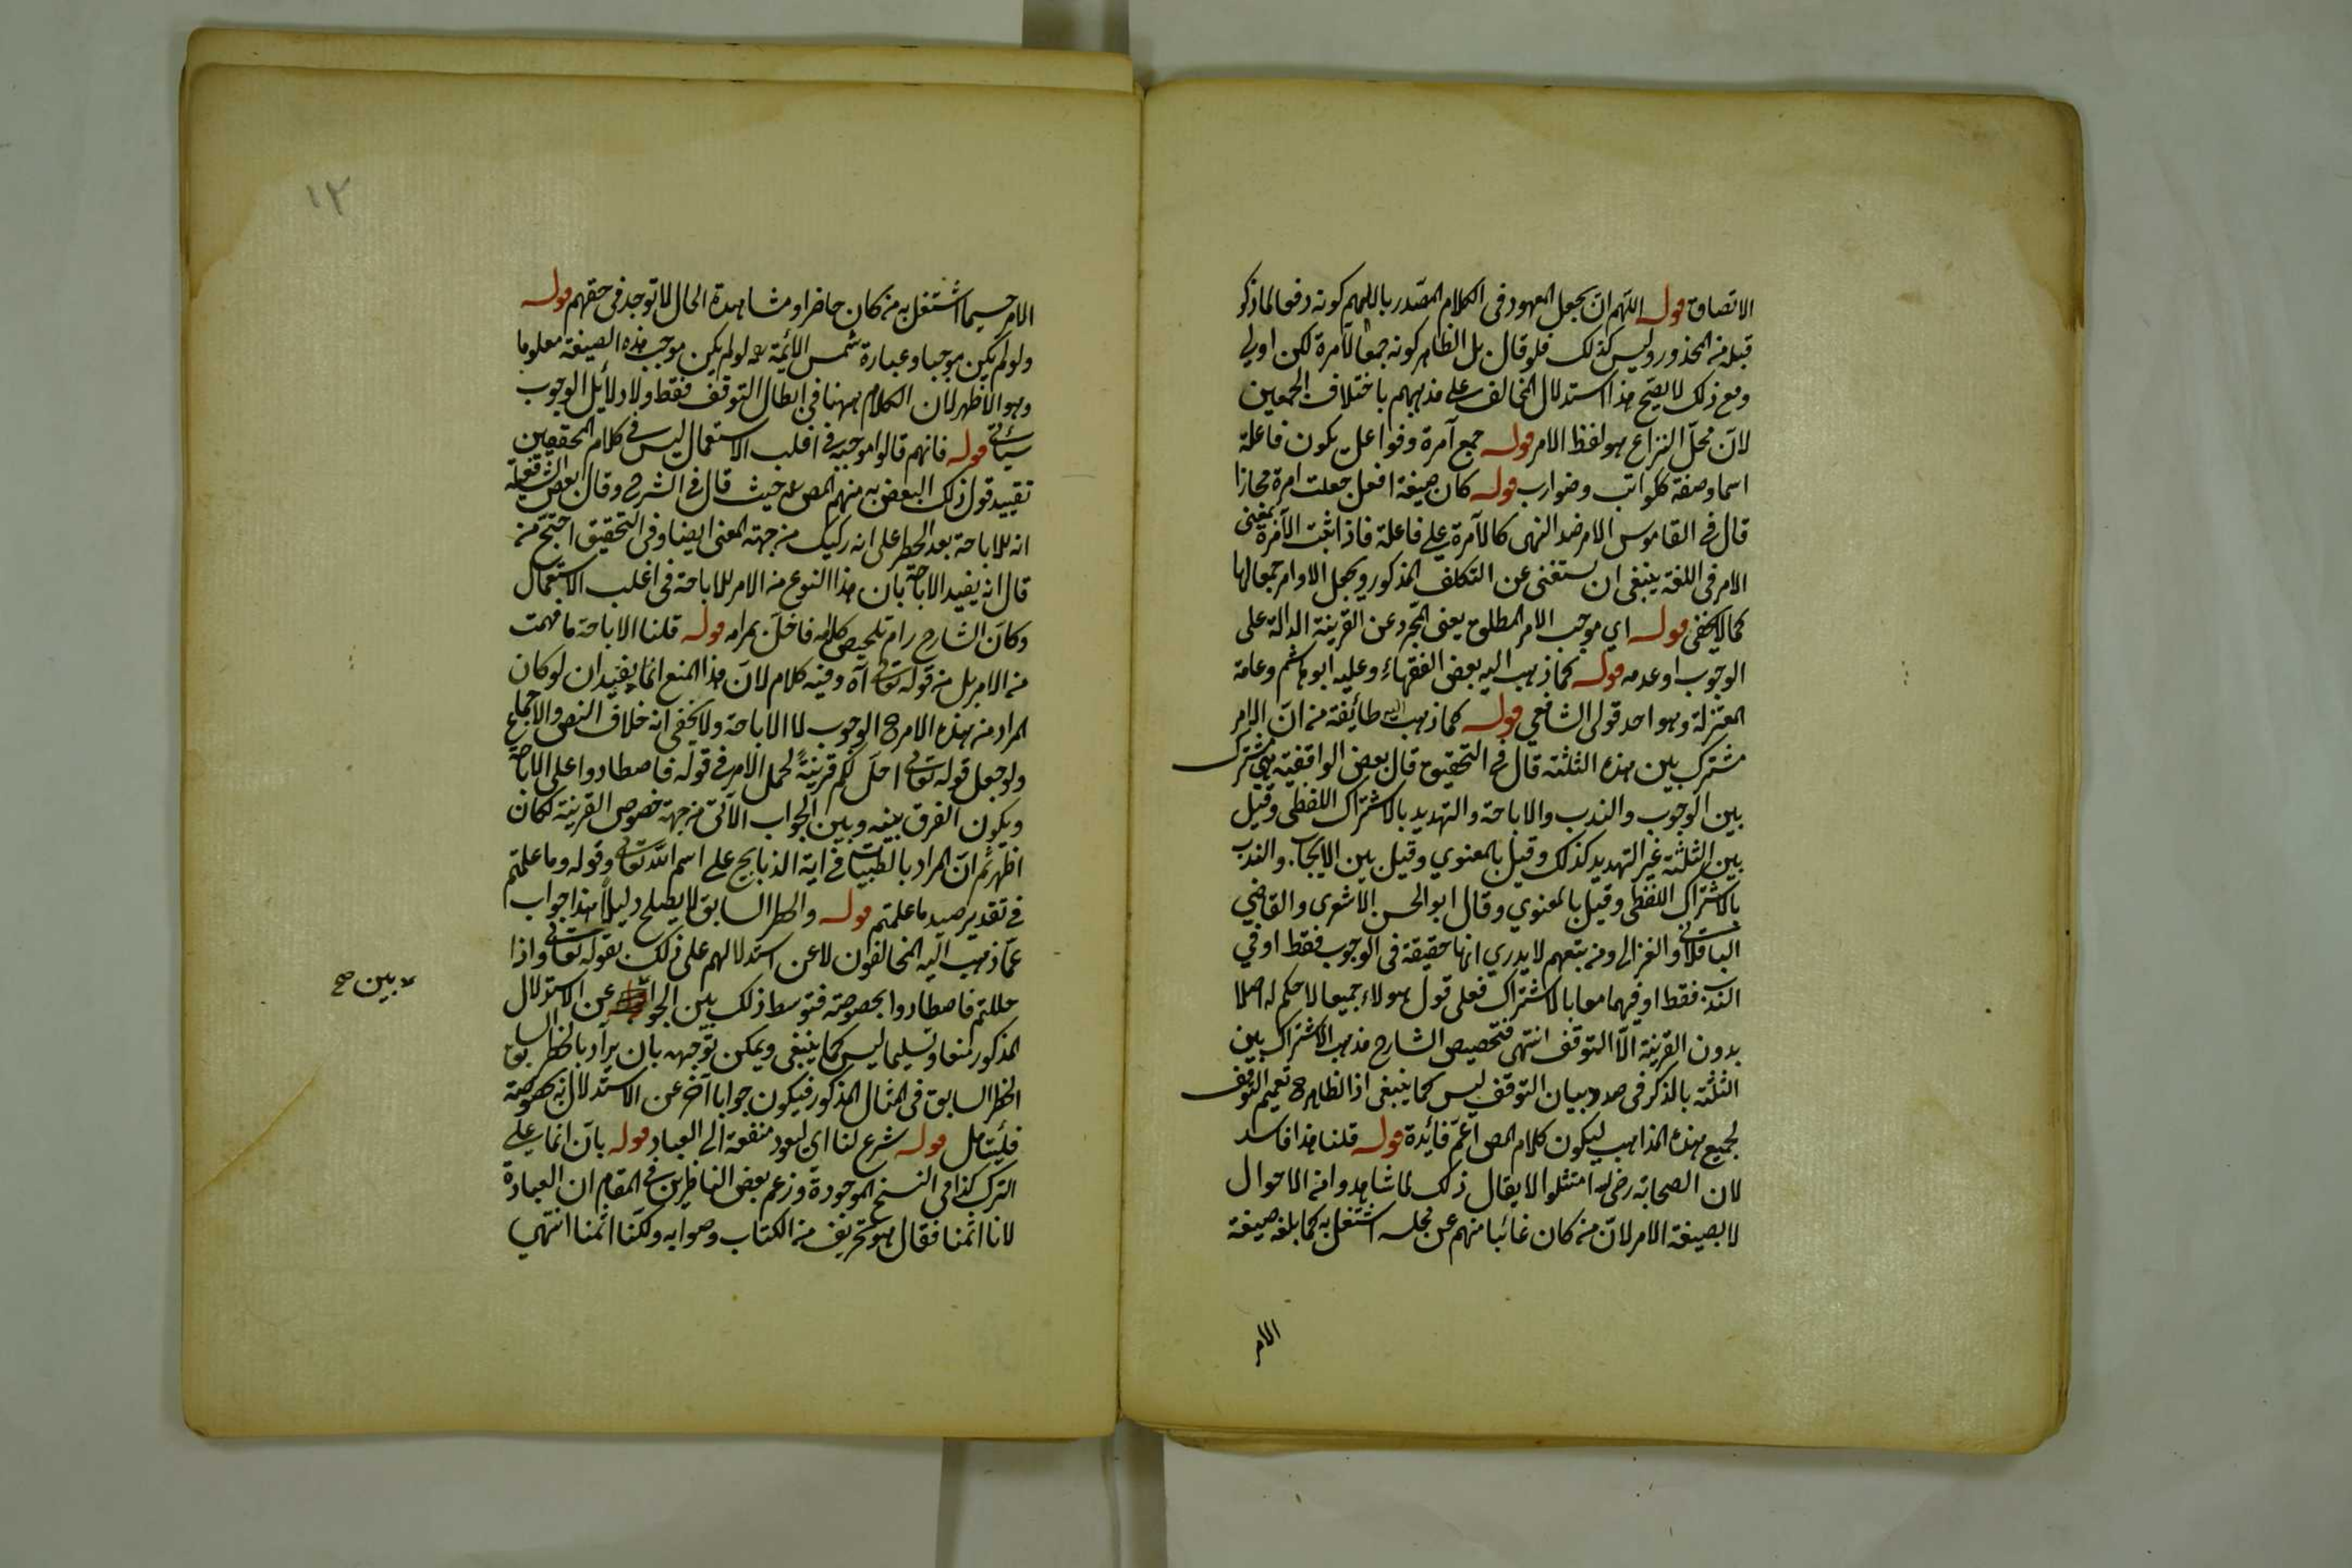 الاتصاف قوله اللهم ان يجعل المعهود في الكلام المصدر باللهم كونه دفعا لما ذكر
قبله من المحذور وليس كذلك فلو قال بل الظاهر كونه جمعا لآمرة لكن اولي
ومع ذلك لا يصح هذا استدلال المخالف على مذهبهم باختلاف الجمعين
لان محل النزاع هو لفظ الامر قوله جمع آمرة وفواعل يكون فاعلة
اسما وصفة ككواتب وضوارب قوله كان صيغة افعل جعلت امرة مجازا
قال في القاموس الامر ضد النهى كالآمرة على فاعلة فاذا ثبت الآمرة بمعنى
الامر في اللغة ينبغى ان يستغنى عن التكلف المذكور ويجعل الاوامر جمعا لها
كما لا يخفى قوله اي موجب الامر المطلق يعنى المجرد عن القرينة الدالة على
الوجوب او عدمه قوله كما ذهب اليه بعض الفقهاء وعليه ابو هاشم وعامة
المعتزلة وهو احد قولى الشافعي قوله كما ذهب اليه طائفة من ان الامر
مشترك بين هذه الثلثة قال في التحقيق قال بعض الواقفية هي مشترك
بين الوجوب والندب والاباحة والتهديد بالاشتراك اللفظى وقيل
بين الثلثة غير التهديد كذلك وقيل بالمعنوي وقيل بين الايجاب والندب
بالاشتراك اللفظى وقيل بالمعنوي وقال ابو الحسن الاشعرى والقاضي
الباقلاني والغزالى ومن تبعهم لا يدري انها حقيقة في الوجوب فقط او في
الندب فقط او فيهما معا بالاشتراك فعلى قول هولاء جميعا لا حكم له اصلا
بدون القرينة الا التوقف انتهى فتخصيص الشارح مذهب الاشتراك بين
الثلثة بالذكر في صدد بيان التوقف ليس كما ينبغى اذ الظاهر ح تعميم التوقف
لجميع هذه المذاهب ليكون كلام المص اعم فائدة قوله قلنا هذا فاسد
لان الصحابة رضى الله امتثلوا الا يقال ذلك لما شاهدوا من الاحوال
لا بصيغة الامر لان من كان غائبا منهم عن مجلسه اشتغل به كما بلغه صيغة
الامر
١٢
الامر حسبما اشتغل به من كان حاضرا ومشاهدة الحال لا توجد في حقهم قوله
ولو لم يكن موجبا وعبارة شمس الائمة ره لو لم يكن موجب هذه الصيغة معلوما
وهو الاظهر لان الكلام ههنا في ابطال التوقف فقط ولا دلائل الوجوب
سياتي قوله فانهم قالوا موجبه في اغلب الاستعمال ليس في كلام المحققين
تقييد قول ذلك البعض به منهم المص ره حيث قال في الشرح وقال بعض الشافعية
انه للاباحة بعد الحظر على انه ركيك من جهة المعنى ايضا وفي التحقيق احتج من
قال انه يفيد الاباحة بان هذا النوع من الامر للاباحة في اغلب الاستعمال
وكان الشارح رام تلخيص كلامه فاخل بمرامه قوله قلنا الاباحة ما فهمت
من الامر بل من قوله تعالى آه وفيه كلام لان هذا المنع انما يفيد ان لو كان
المراد من هذه الامر ح الوجوب لا الاباحة ولا يخفى انه خلاف النص والاجماع
ولو جعل قوله تعالى احل لكم قرينة لحمل الامر في قوله فاصطادوا على الاباحة
ويكون الفرق بينه وبين الجواب الآتى من جهة خصوص القرينة لكان
اظهر ثم ان المراد بالطيبات في اية الذبايح على اسم الله تعالى وقوله وما علمتم
في تقدير صيد ما علمتم قوله والحظر السابق لا يصلح دليلا هذا جواب
عما ذهب اليه المخالفون لا عن استدلالهم على ذلك بقوله تعالى واذا
حللتم فاصطادوا بخصوصه فتوسط ذلك بين الجوابين عن الاستدلال
بين صح
المذكور منعا وتسليما ليس كما ينبغى ويمكن توجيهه بان يراد بالحظر السابق
الحظر السابق في المثال المذكور فيكون جوابا آخر عن الاستدلال به بخصوصه
فليتامل قوله شرع لنا اى ليعود منفعة الى العباد قوله بان انما على
الترك كذا في النسخ الموجودة وزعم بعض الناظرين في المقام ان العبادة
لانا اثمنا فقال هو تحريف من الكتاب وصوابه ولكنا اثمنا انتهى